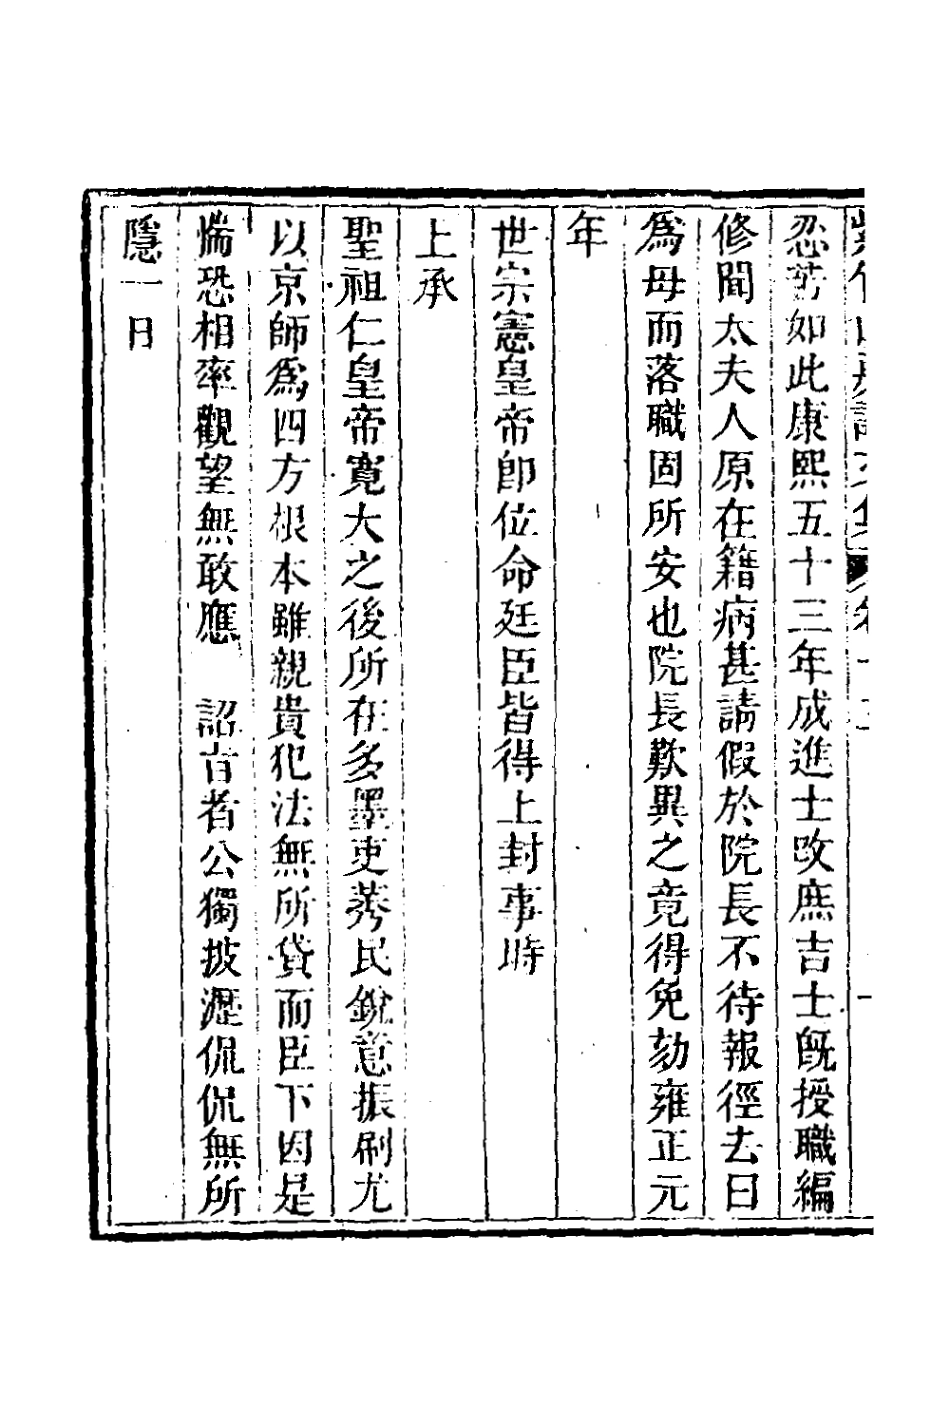 忍苦如此康熙五十三年成進士改庶吉士旣授職編
修聞太夫人原在籍病甚請假於院長不待報徑去曰
爲母而落職固所安也院長歎異之竟得免劾雍正元
年
世宗憲皇帝卽位命廷臣皆得上封事時
上承
聖祖仁皇帝寬大之後所在多墨吏莠民銳意振刷尤
以京師爲四方根本雖親貴犯法無所貸而臣下因是
惴恐相率觀望無敢應 詔言者公獨披瀝侃侃無所
隱一日